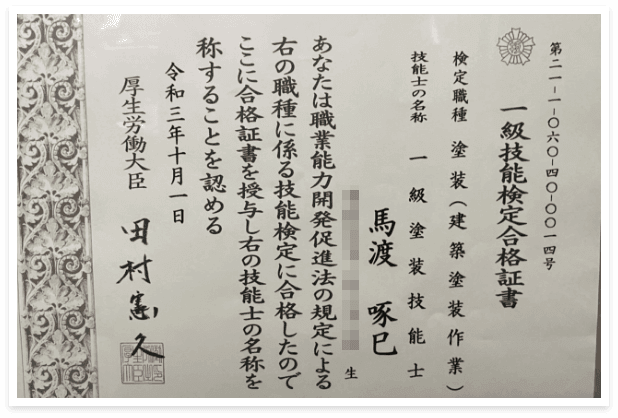 第二一-一-〇六〇-四〇-〇〇一四号
一級技能検定合格証書
検定職種 塗装(建築塗装作業)
技能士の名称 一級塗装技能士
馬渡 啄巳
生
あなたは職業能力開発促進法の規定による
右の職種に係る技能検定に合格したので
ここに合格証書を授与し右の技能士の名称を
称することを認める
令和三年十月一日
厚生労働大臣 田村憲久